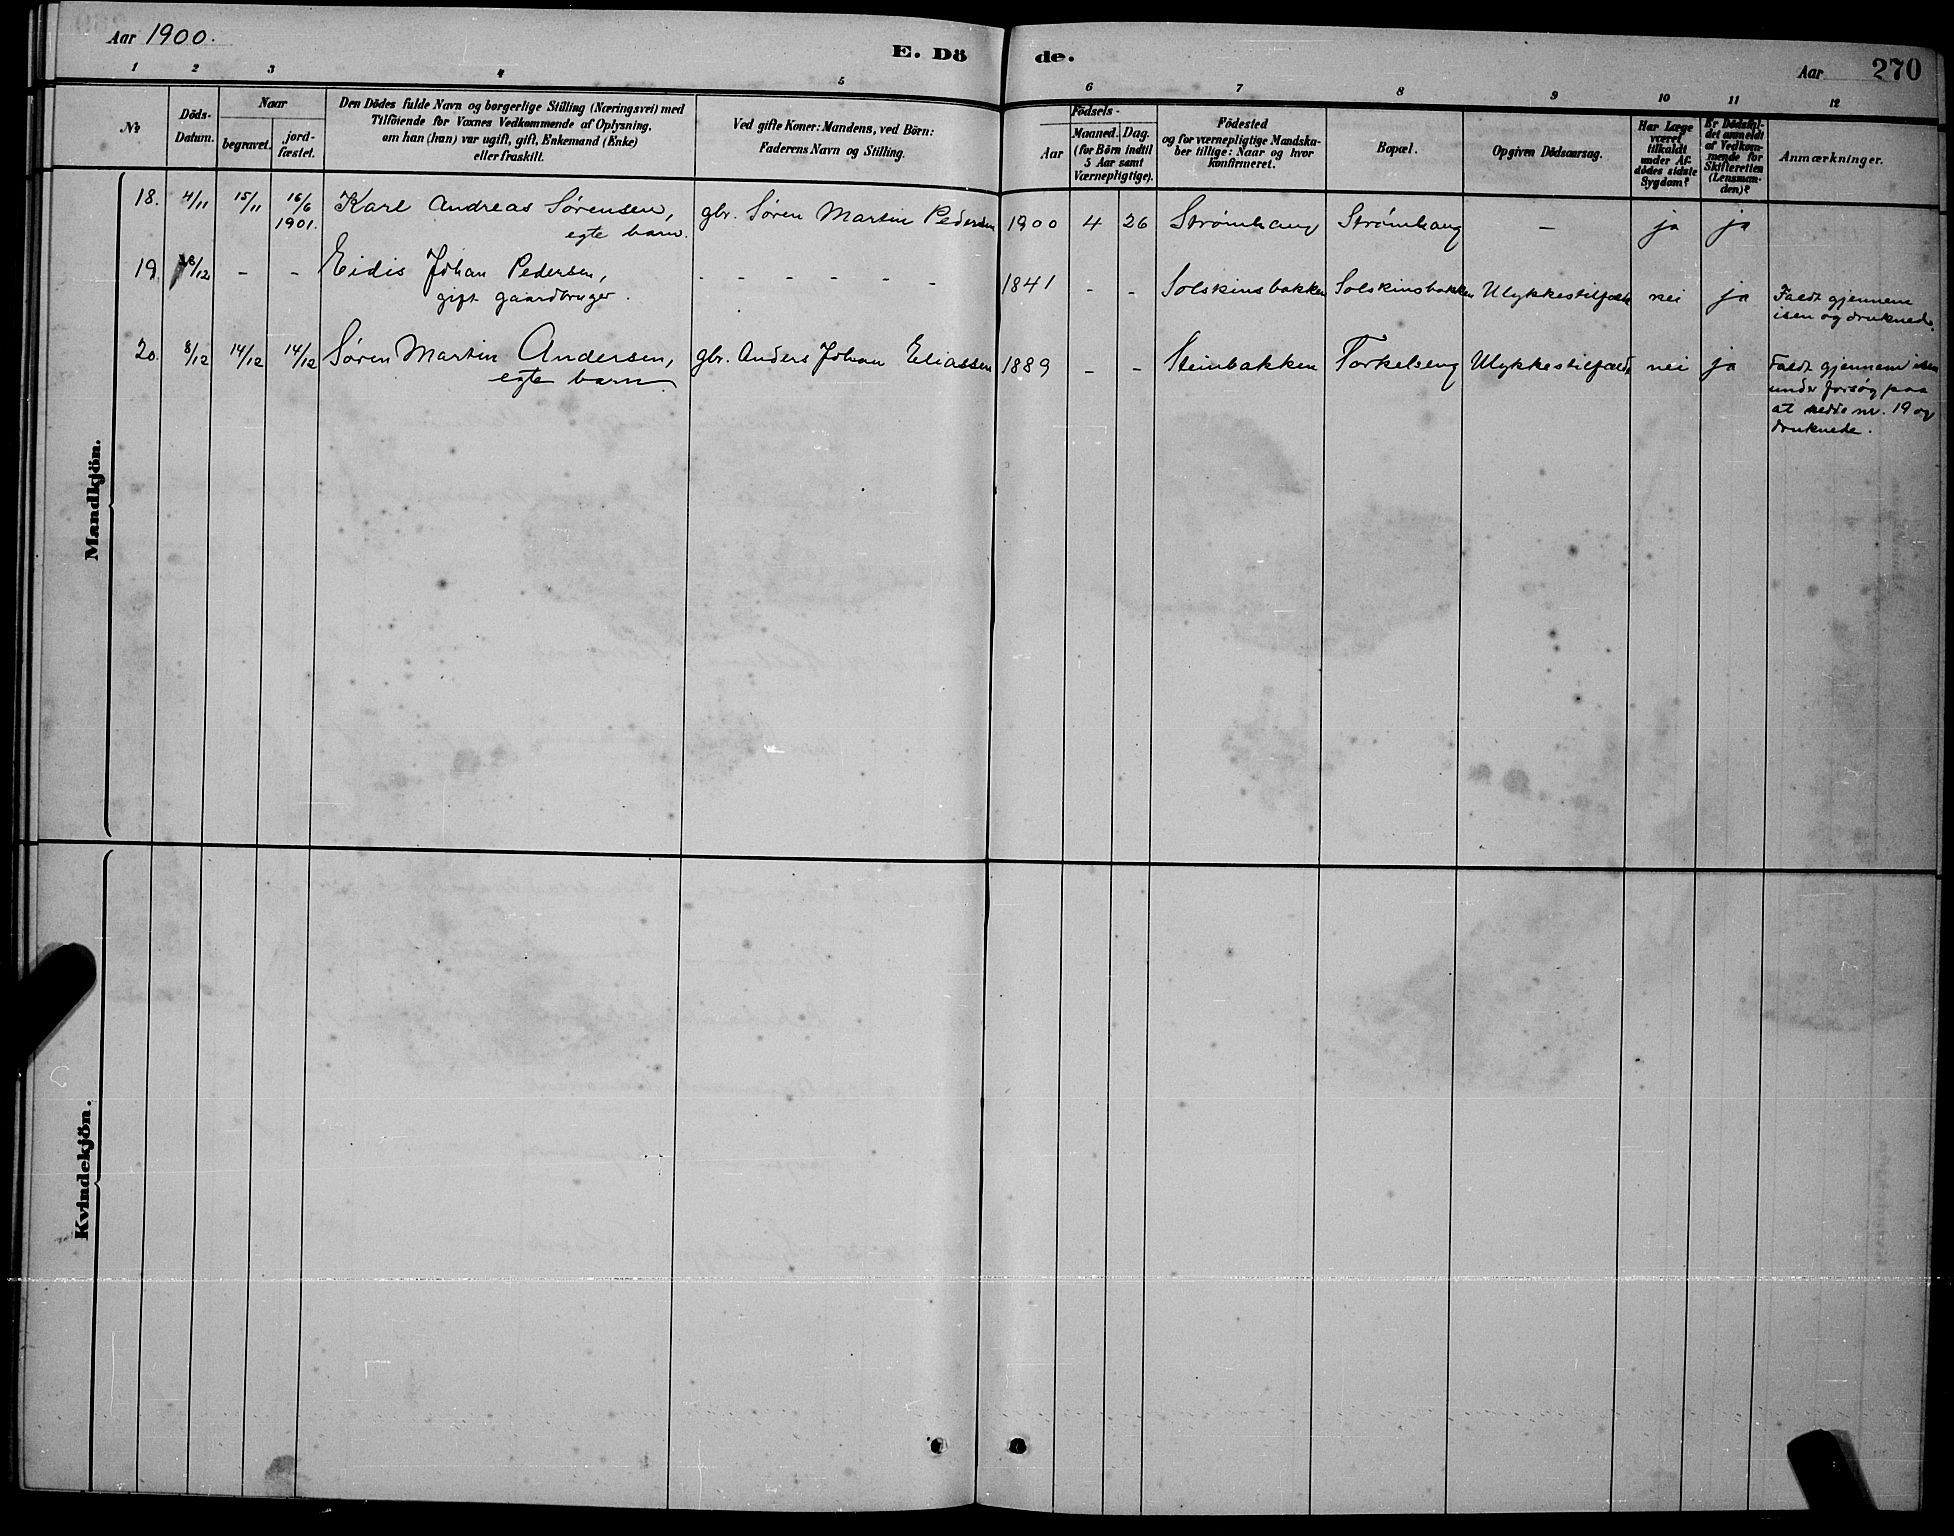 Aar 1900.
E. Dö de.
Aar 270
1 2 3 4 5 6 7 8 9 10 11 12
No
Döds-Datum.
Naar
begravet.
jord-fæstet.
Den Dödes fulde Navn og borgerlige Stilling (Næringsvei) med
Tilföiende for Voxnes Vedkommende af Oplysning,
om han (hun) var ugift, gift, Enkemand (Enke)
eller fraskilt.
Ved gifte Koner: Mandens, ved Börn:
Faderens Navn og Stilling.
Födsels-
Aar
Maaned. Dag.
(for Börn indtil
5 Aar samt
Værnepligtige).
Födested
og for værnepligtige Mandska-
ber tillige: Naar og hvor
konfirmeret.
Bopæl.
Opgiven Dödsaarsag.
Har Læge
været
tilkaldt
under Af-
dödes sidste
Sygdom?
Er Dödsfal-
det anmeldt
af Vedkom-
mende for
Skifteretten
(Lensman-
den)?
Anmærkninger.
Mandkjön.
18. 4/11 15/11 16/6 Karl Andreas Sørensen, gbr. Søren Martin Pedersen 1900 4 26 Strømhaug Strømhaug - ja ja
1901. egte barn.
19. 8/12 - - Eidis Johan Pedersen, - - - - - - 1841 - - Solskinsbakken Solskinsbakken Ulykkestilfælde nei ja Faldt gjennem
gift gaardbruger. isen og druknede.
20. 8/12 14/12 14/12 Søren Martin Andersen, gbr. Anders Johan Eliassen 1889 - - Steinbakken Torkelseng Ulykkestilfælde nei ja Faldt gjennem isen
egte barn under forsøg paa
at redde nr. 19 og
druknede.
Kvindekjön.